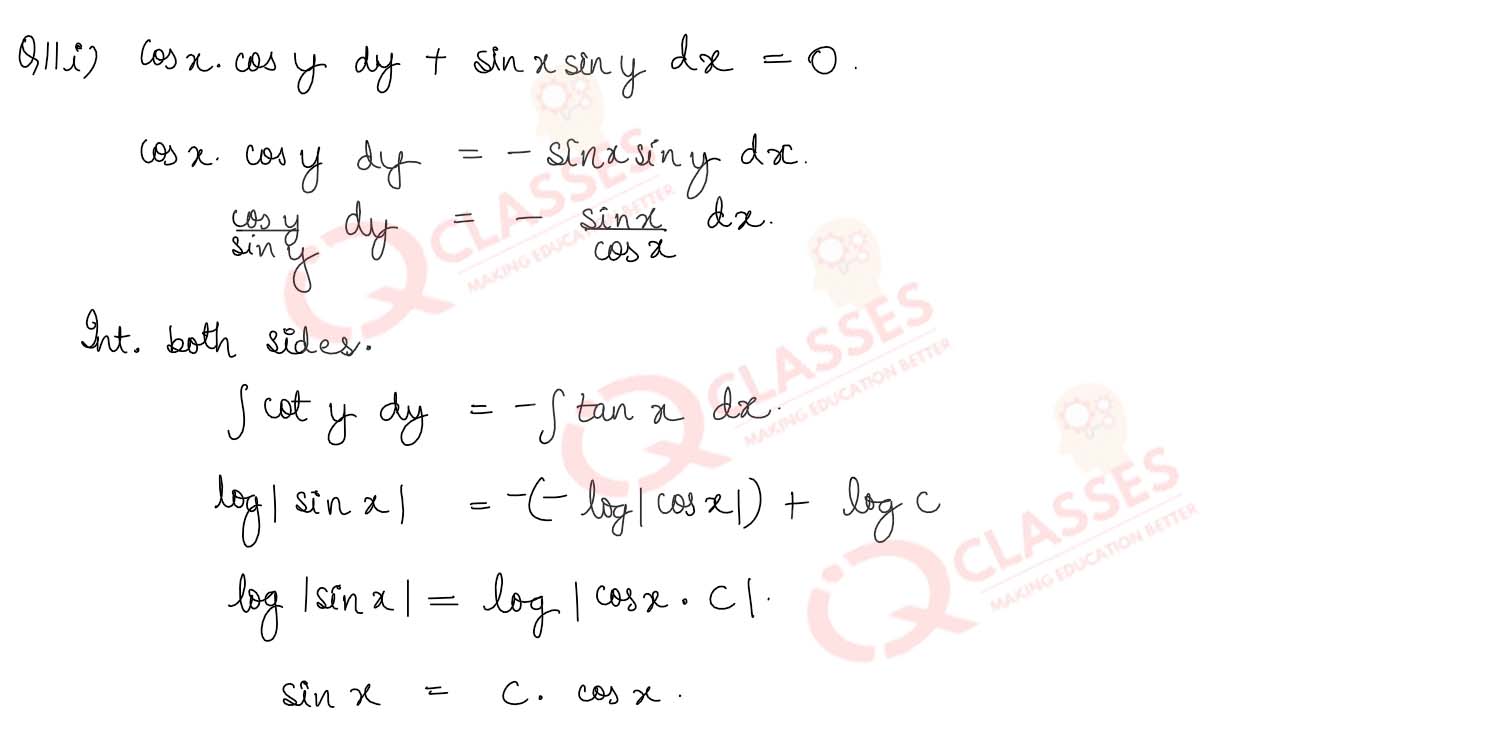 Q11 i) cos x. cos y dy + sin x sin y dx = 0.
cos x. cos y dy = - sin x sin y dx.
cos y/sin y dy = - sin x/cos x dx.
Int. both sides.
∫ cot y dy = - ∫ tan x dx.
log | sin x | = -(- log | cos x |) + log c
log | sin x | = log | cos x . c |.
sin x = c. cos x.
QCLASSES
MAKING EDUCATION BETTER
QCLASSES
MAKING EDUCATION BETTER
QCLASSES
MAKING EDUCATION BETTER